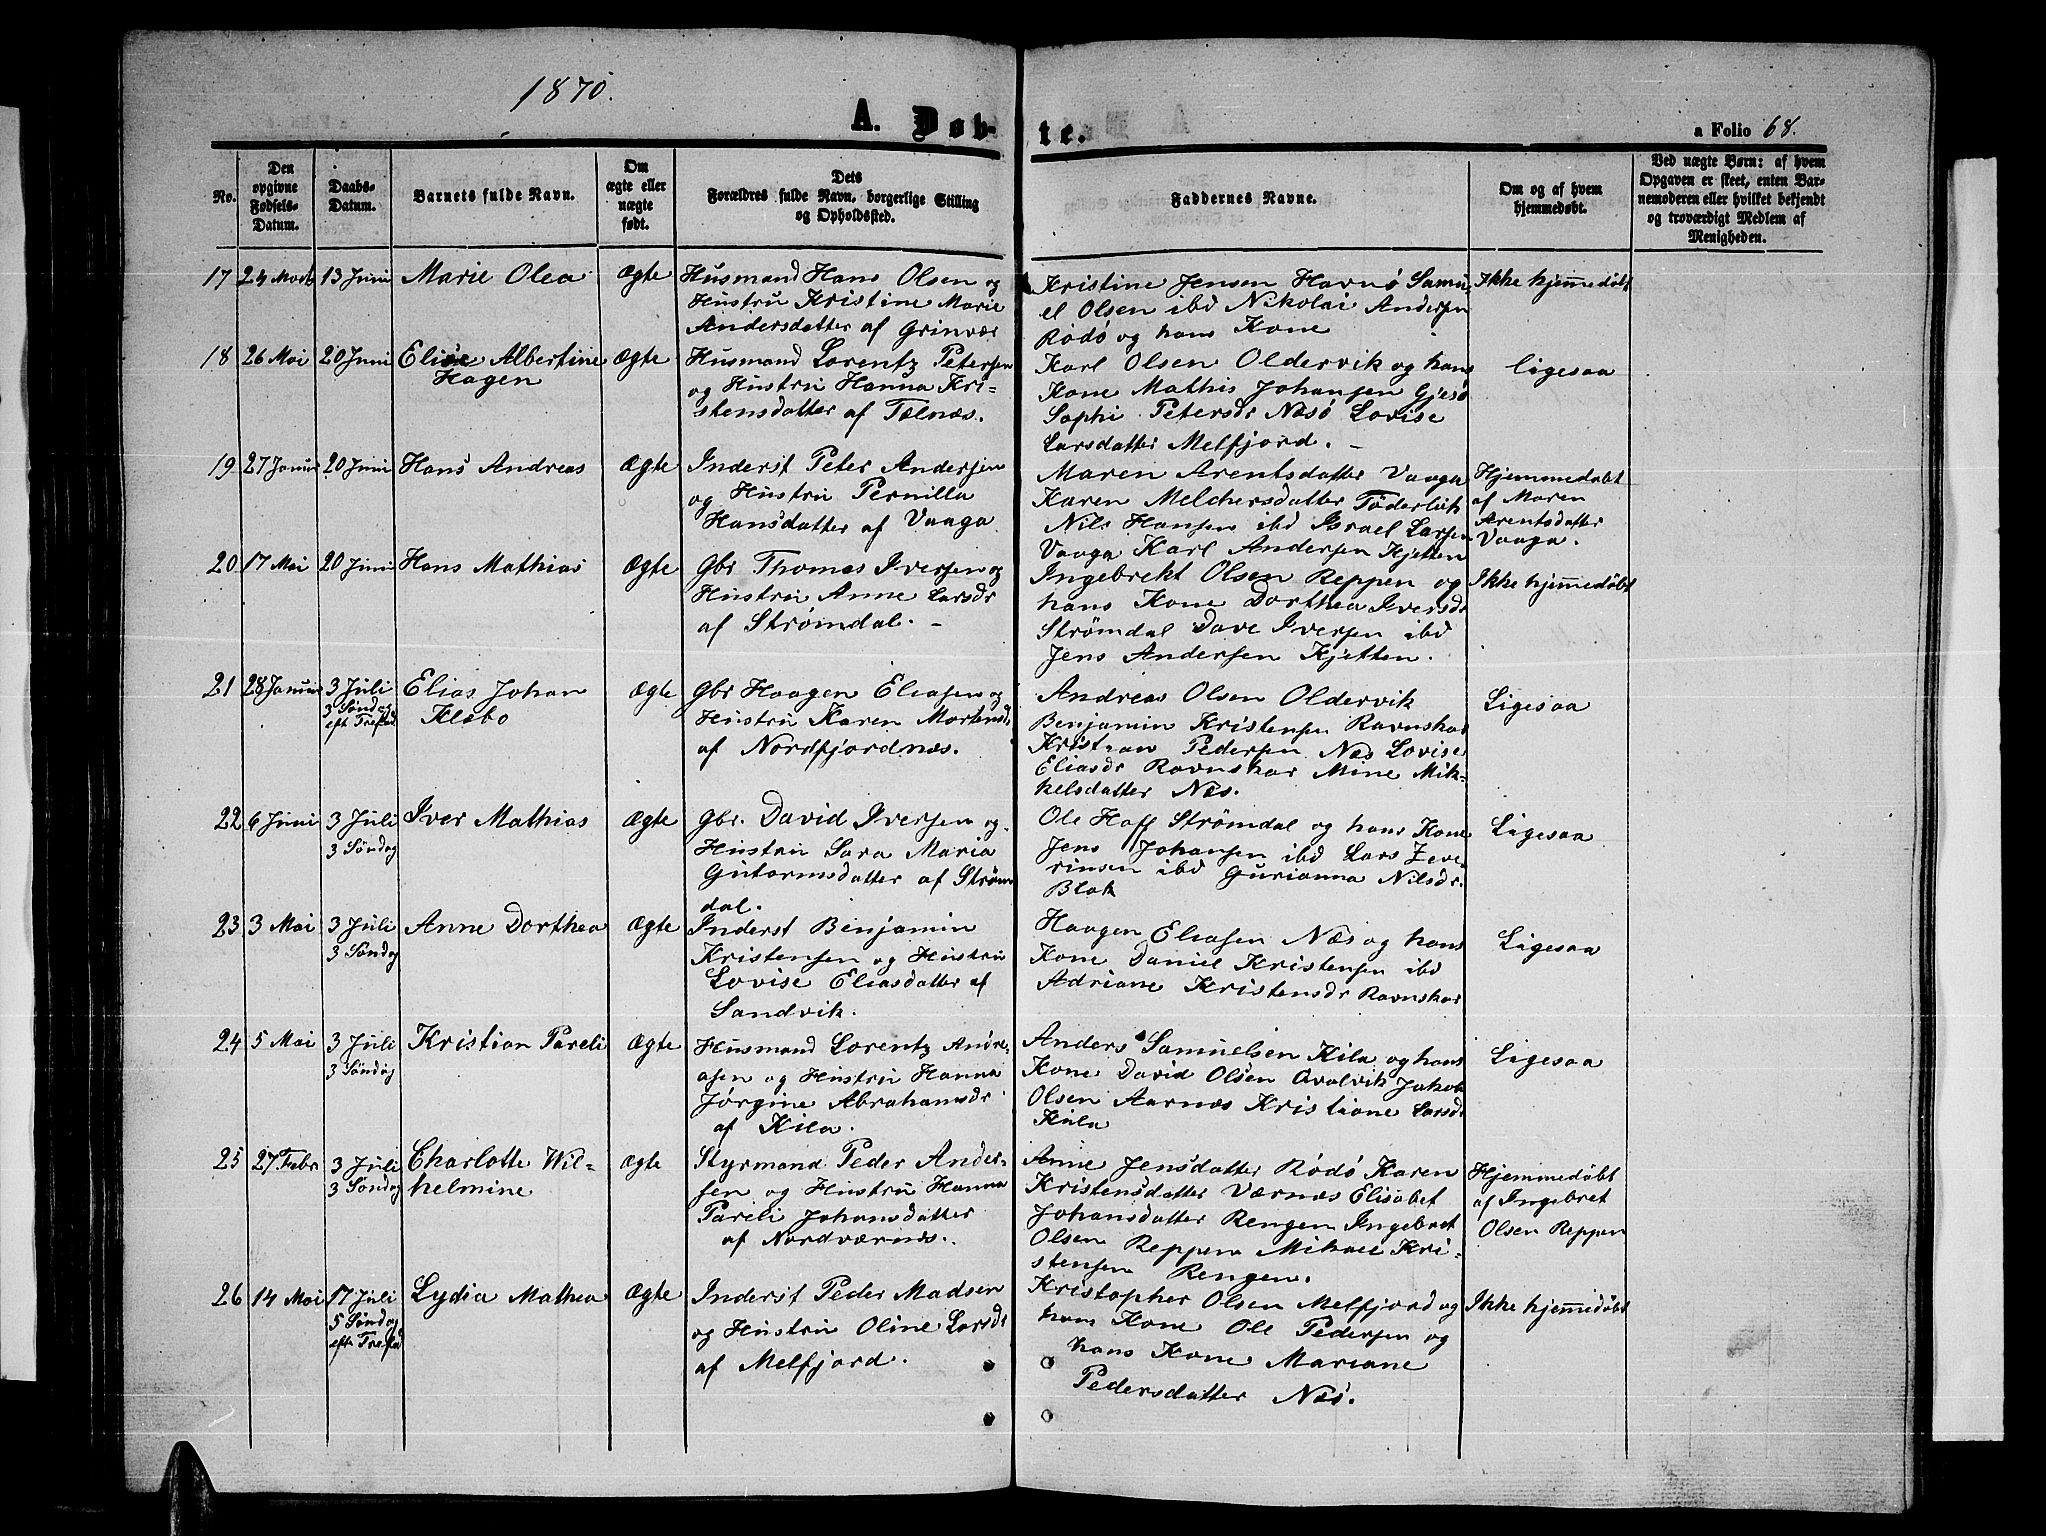 1870.
A. Døb-
te.
a Folio 68.
No.
Den
opgivne
Fødsels-
Datum.
Daabs-
Datum.
Barnets fulde Navn.
Om
ægte eller
uægte
født.
Dets
Forældres fulde Navn, borgerlige Stilling
og Opholdssted.
Faddernes Navne.
Om og af hvem
hjemmedøbt.
Ved uægte Børn: af hvem
Opgaven er skeet, enten Bar-
nemoderen eller hvilket bekjendt
og troværdigt Medlem af
Menigheden.
17 24 13 Juni Marie Olea Ægte
Husmand Hans Olsen og
Hustru Kristine Marie
Andersdatter af Grinvær
Kristine Jensen Havnø Samu-
el Olsen ibd Nikolai Andersen
Rødø og hans Kone
Ikke hjemmedøbt
18 26 Mai 20 Juni Elise Albertine
Hagen
Ægte
Husmand Lorentz Petersen
og Hustru Hanna Kri-
stensdatter af Telnæs.
Karl Olsen Oldervik og hans
Kone Mathis Johansen Gjesø
Sophi Petersdr Næsø Lovise
Larsdatter Melfjord. –
Ligesaa
19 27 Januar 20 Juni Hans Andreas Ægte
Inderst Peter Andersen
og Hustru Pernilla
Hansdatter af Vaaga
Maren Arentsdatter Vaaga
Karen Melchersdatter
Nils Hansen ibd Israel Larsen
Vaaga Karl Andersen Kjetten
Hjemmedøbt
af Maren
Arentsdatter
Vaaga.
20 17 Mai 20 Juni Hans Mathias Ægte
Gbr Thomas Iversen og
Hustru Anne Larsdr
af Strømdal. –
Ingebrekt Olsen Reppen og
hans Kone Dorthea Iversdr
Strømdal Dave Iversen ibd
Jens Andersen Kjetten.
Ikke hjemmedøbt
21 28 Januar 3 Juli
3 Søndag
eft Trefold
Elias Johan
Klæbo
Ægte
Gbr Haagen Eliasen og
Hustru Karen Mortensdr
af Nordfjordnæs.
Andreas Olsen Oldervik
Benjamin Kristensen Ravnskar
Kristian Pedersen Næs Lovise
Eliasdr Ravnskar Mine Mik-
kelsdatter Næs.
Ligesaa
22 6 Juni 3 Juli
3 Søndag
Iver Mathias Ægte
Gbr. David Iversen og
Hustru Sara Maria
Gutormsdatter af Strøm
dal.
Ole Hoff Strømdal og hans Kone
Jens Johansen ibd Lars Zeve-
rinsen ibd Gurianna Nilsdr.
Blok
Ligesaa
23 3 Mai 3 Juli
3 Søndag
Anne Dorthea Ægte
Inderst Benjamin
Kristensen og Hustru
Lovise Eliasdatter af
Sandvik.
Haagen Eliasen Næs og hans
Kone Daniel Kristensen ibd
Adriane Kristensdr Ravnskar
Ligesaa
24 5 Mai 3 Juli
3 Søndag
Kristian Pareli Ægte
Husmand Lorentz Andre-
asen og Hustru Hanna
Jørgine Abrahamsdr
af Kila.
Anders Samuelsen Kila og hans
Kone David Olsen Qvalvik Jakob
Olsen Aarnæs Kristiane Larsdr
Kila
Ligesaa
25 27 Febr 3 Juli
3 Søndag
Charlotte Wil-
helmine
Ægte
Styrmand Peder Ander-
sen og Hustru Hanna
Pareli Johansdatter
af Nordværnæs.
Anne Jensdatter Rødø Karen
Kristensdatter Værnæs Elisabet
Johansdatter Rengen Ingebret
Olsen Reppen Mikael Kri-
stensen Rengen.
Hjemmedøbt
af Ingebret
Olsen Reppen
26 14 Mai 17 Juli
5 Søndag
eft Trefold
Lydia Mathea Ægte
Inderst Peder Madsen
og Hustru Oline Larsdr
af Melfjord.
Kristopher Olsen Melfjord og
hans Kone Ole Pedersen og
hans Kone Mariane
Pedersdatter Næs.
Ikke hjemmedøbt